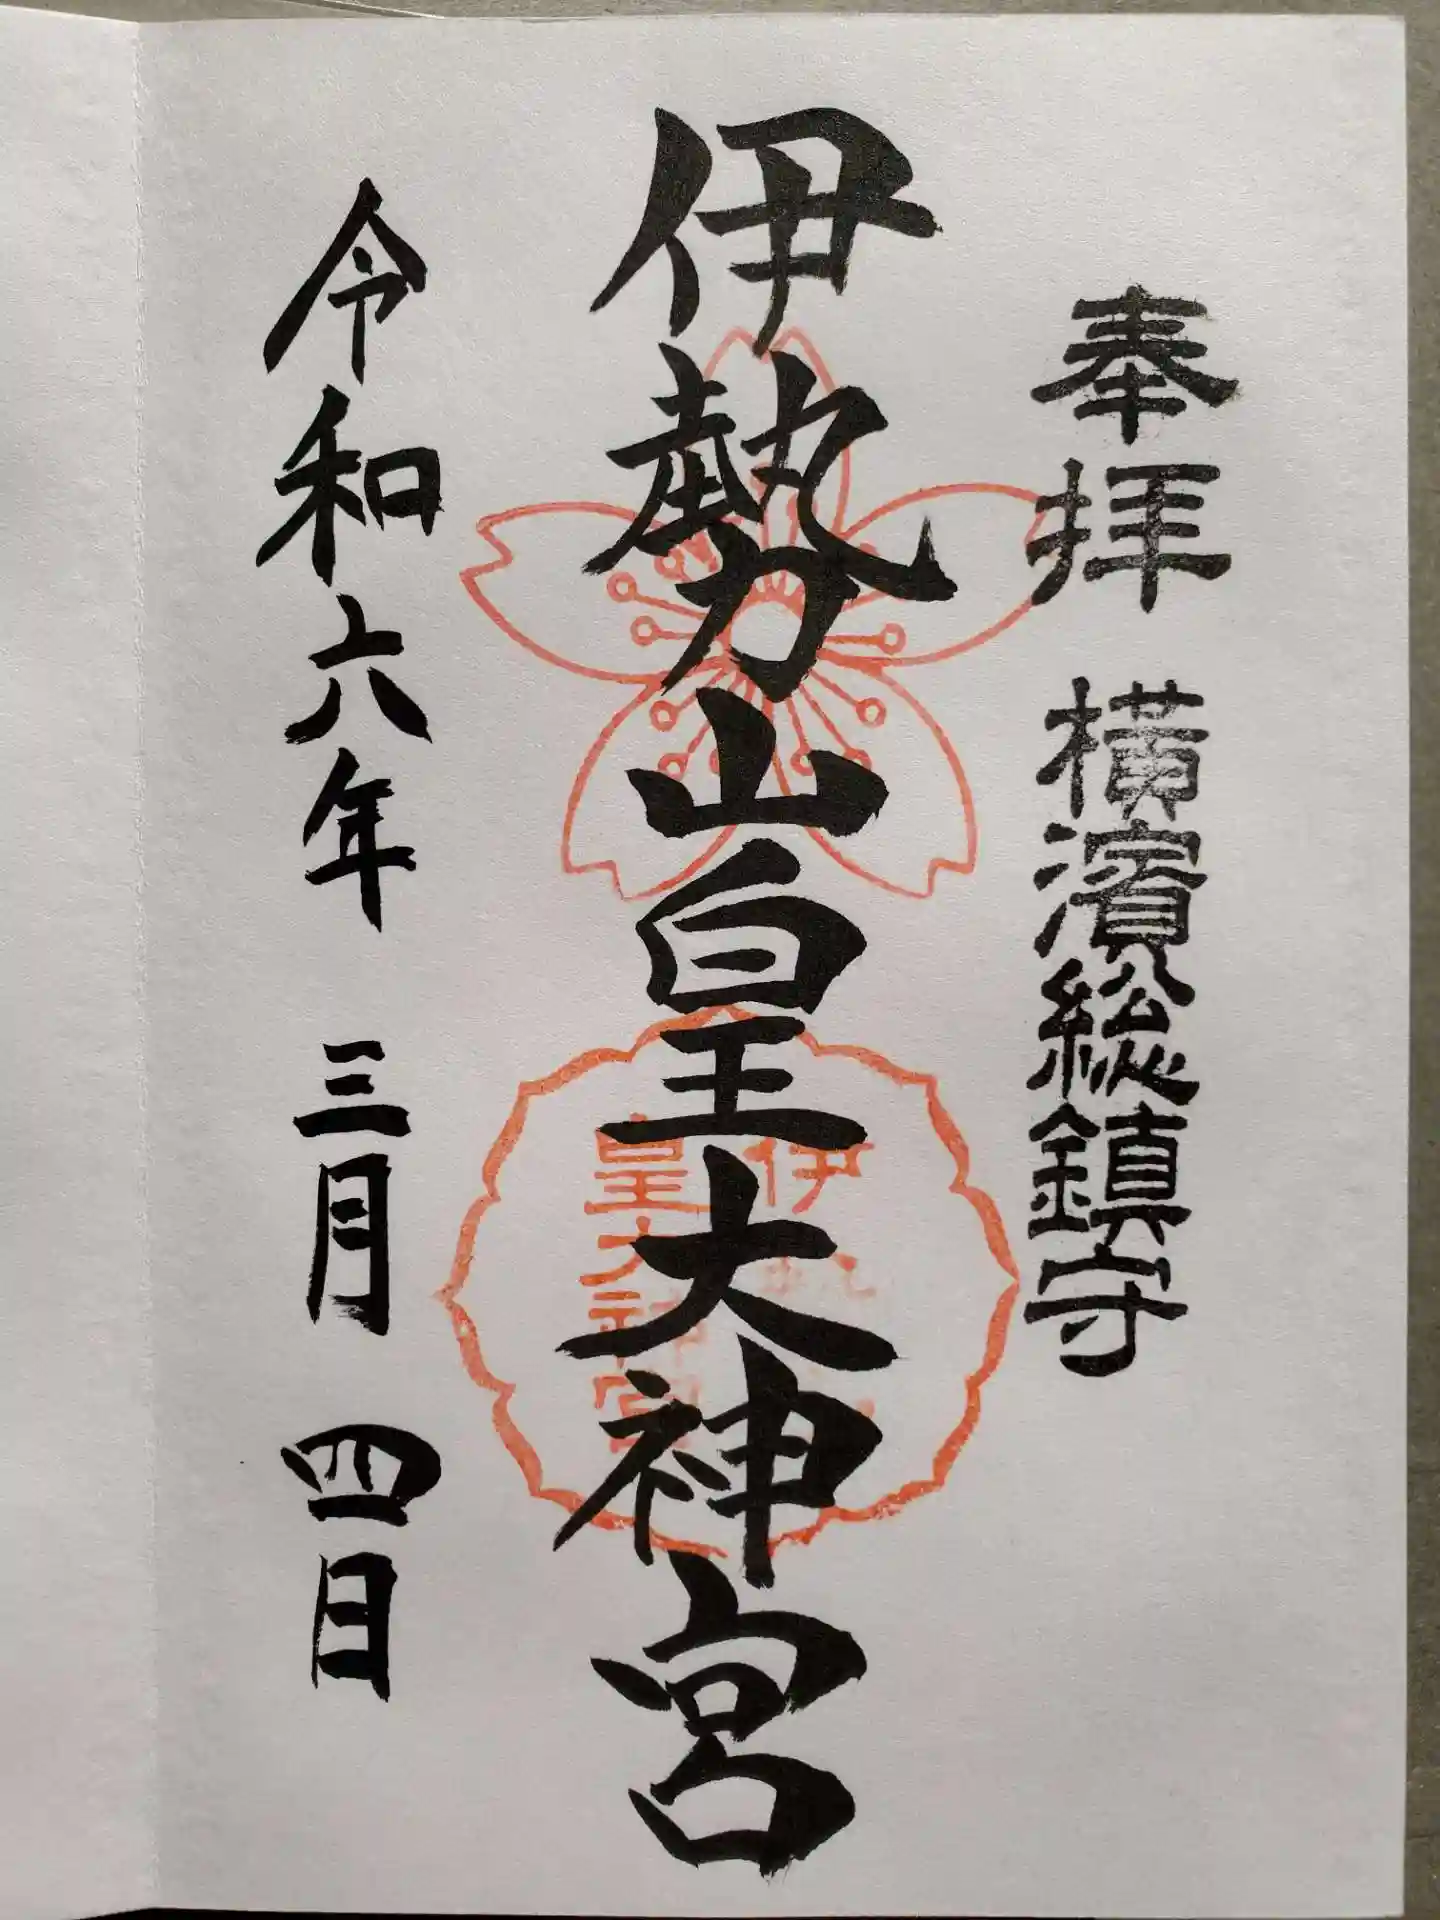 奉拝 横濱総鎮守
伊勢山皇大神宮
伊
皇大神宮
令和六年 三月 四日